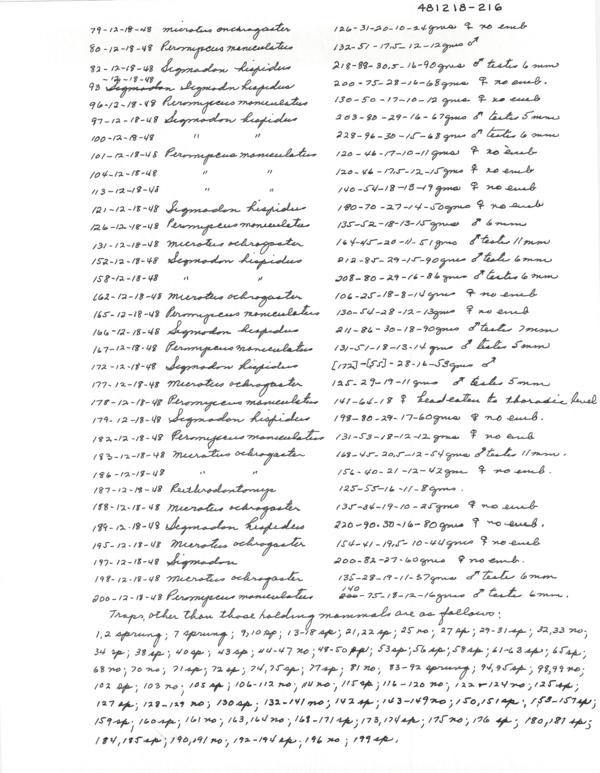 481218-216
79-12-18-48 Microtus ochrogaster 126-31-20-10-24gms ♀ no emb
80-12-18-48 Peromyscus maniculatus 132-51-17.5-12-12gms ♂
82-12-18-48 Sigmodon hispidus 218-88-30.5-16-90gms ♂ testes 6 mm
93-12-18-48 Sigmodon hispidus 200-75-28-16-68gms ♀ no emb.
96-12-18-48 Peromyscus maniculatus 130-50-17-10-12 gms ♀ no emb
97-12-18-48 Sigmodon hispidus 203-80-29-16-67gms ♂ testes 5mm
100-12-18-48 " " 228-96-30-15-68gms ♂ testes 6 mm
101-12-18-48 Peromyscus maniculatus 120-46-17-10-11 gms ♀ no emb
104-12-18-48 " " 120-46-17.5-12-15gms ♀ no emb
113-12-18-48 " " 140-54-18-13-19gms ♀ no emb
121-12-18-48 Sigmodon hispidus 180-70-27-14-50gms ♀ no emb
126-12-18-48 Peromyscus maniculatus 135-52-18-13-15gms ♂ 6mm
131-12-18-48 Microtus ochrogaster 164-45-20-11-51gms ♂ testes 11mm
152-12-18-48 Sigmodon hispidus 212-85-29-15-90gms ♂ teste 6mm
158-12-18-48 " " 208-80-29-16-86gms ♂ testes 6mm
162-12-18-48 Microtus ochrogaster 106-25-18-8-14gms ♀ no emb
165-12-18-48 Peromyscus maniculatus 130-54-28-12-13gms ♀ no emb
166-12-18-48 Sigmodon hispidus 211-86-30-18-90gms ♂ testes 7mm
167-12-18-48 Peromyscus maniculatus 131-51-18-13-14 gms ♂ testes 5mm
172-12-18-48 Sigmodon hispidus [172]-[55]-28-16-53gms ♂
177-12-18-48 Microtus ochrogaster 125-29-19-11gms ♂ testes 5mm
178-12-18-48 Peromyscus maniculatus 141-64-18 ♀ head eaten to thoracic level
179-12-18-48 Sigmodon hispidus 198-80-29-17-60gms ♀ no emb.
182-12-18-48 Peromyscus maniculatus 131-53-18-12-12 gms ♀ no emb
183-12-18-48 Microtus ochrogaster 168-45-20.5-12-54gms ♂ testes 11mm.
186-12-18-48 " " 156-40-21-12-42gms ♀ no emb.
187-12-18-48 Reithrodontomys 125-55-16-11-8gms.
188-12-18-48 Microtus ochrogaster 135-34-19-10-25gms ♀ no emb
189-12-18-48 Sigmodon hispidus 220-90-30-16-80gms ♀ no emb.
195-12-18-48 Microtus ochrogaster 154-41-19.5-10-44gms ♀ no emb
197-12-18-48 Sigmodon 200-82-27-60gms ♀ no emb.
198-12-18-48 Microtus ochrogaster 135-28-19-11-37gms ♂ teste 6mm
200-12-18-48 Peromyscus maniculatus 140-75-18-12-16gms ♂ teste 6mm.
Traps, other than those holding mammals are as follows:
1,2 sprung; 7 sprung; 9,10 sp; 13-18 sp; 21,22 sp; 25 no; 27 sp; 29-31 sp; 32,33 no;
34 sp; 38 sp; 40 sp; 43 sp; 44-47 no; 48-50 sp; 53 sp; 56 sp; 58 sp; 61-63 sp; 65 sp;
68 no; 70 no; 71 sp; 72 sp; 74,75 sp; 77 sp; 81 no; 83-92 sprung; 94,95 sp; 98,99 no;
102 sp; 103 no; 105 sp; 106-112 no; 114 no; 115 sp; 116-120 no; 122-124 no; 125 sp;
127 sp; 128-129 no; 130 sp; 132-141 no; 142 sp; 143-149 no; 150,151 sp; 153-157 sp;
159 sp; 160 sp; 161 no; 163,164 no; 168-171 sp; 173,174 sp; 175 no; 176 sp; 180,181 sp;
184,185 sp; 190,191 no; 192-194 sp; 196 no; 199 sp.